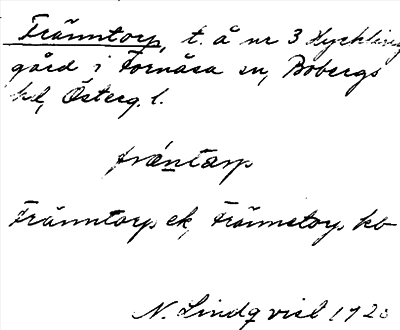 Fränntorp, t. å nr 3 Kyckling
gård i Fornåsa sn, Bobergs
hd, Österg. l.
fräntårp
Fränntorp ek, Frännetorp kb
N. Lindqvist 192